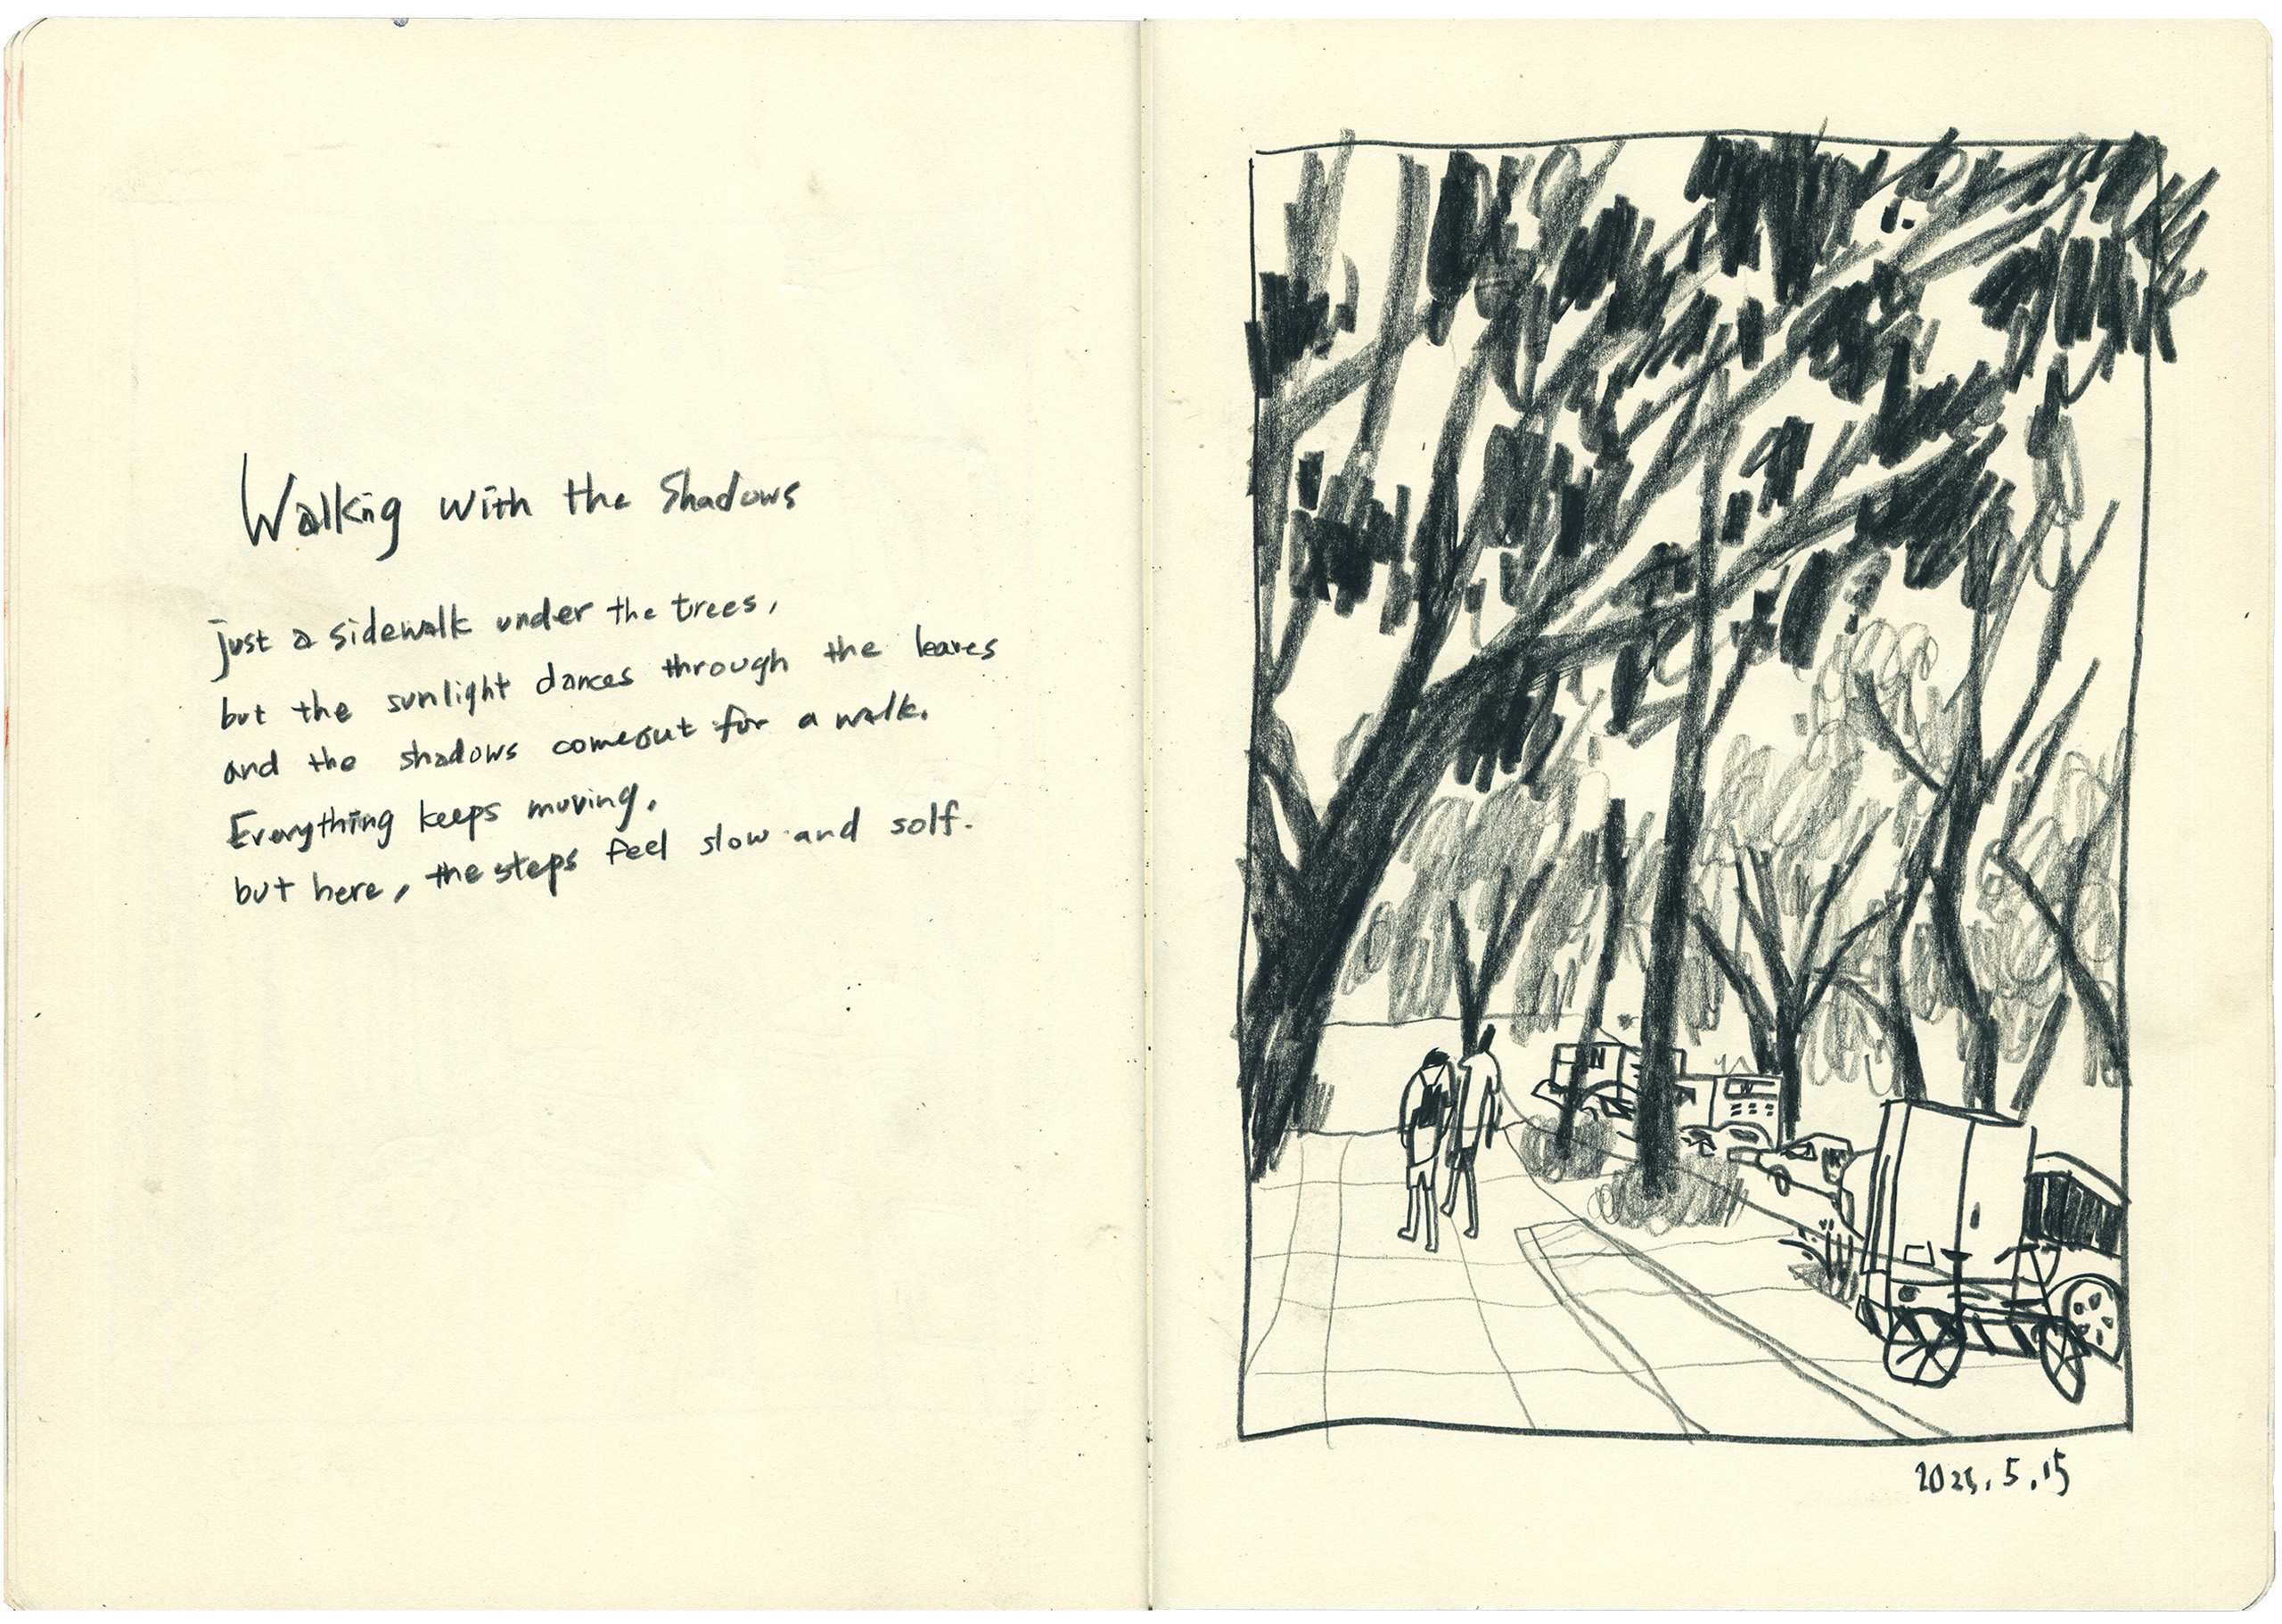 Walking with the Shadows
just a sidewalk under the trees,
but the sunlight dances through the leaves
and the shadows comeout for a walk.
Everything keeps moving,
but here, the steps feel slow and solf.
N
W
2025.5.15